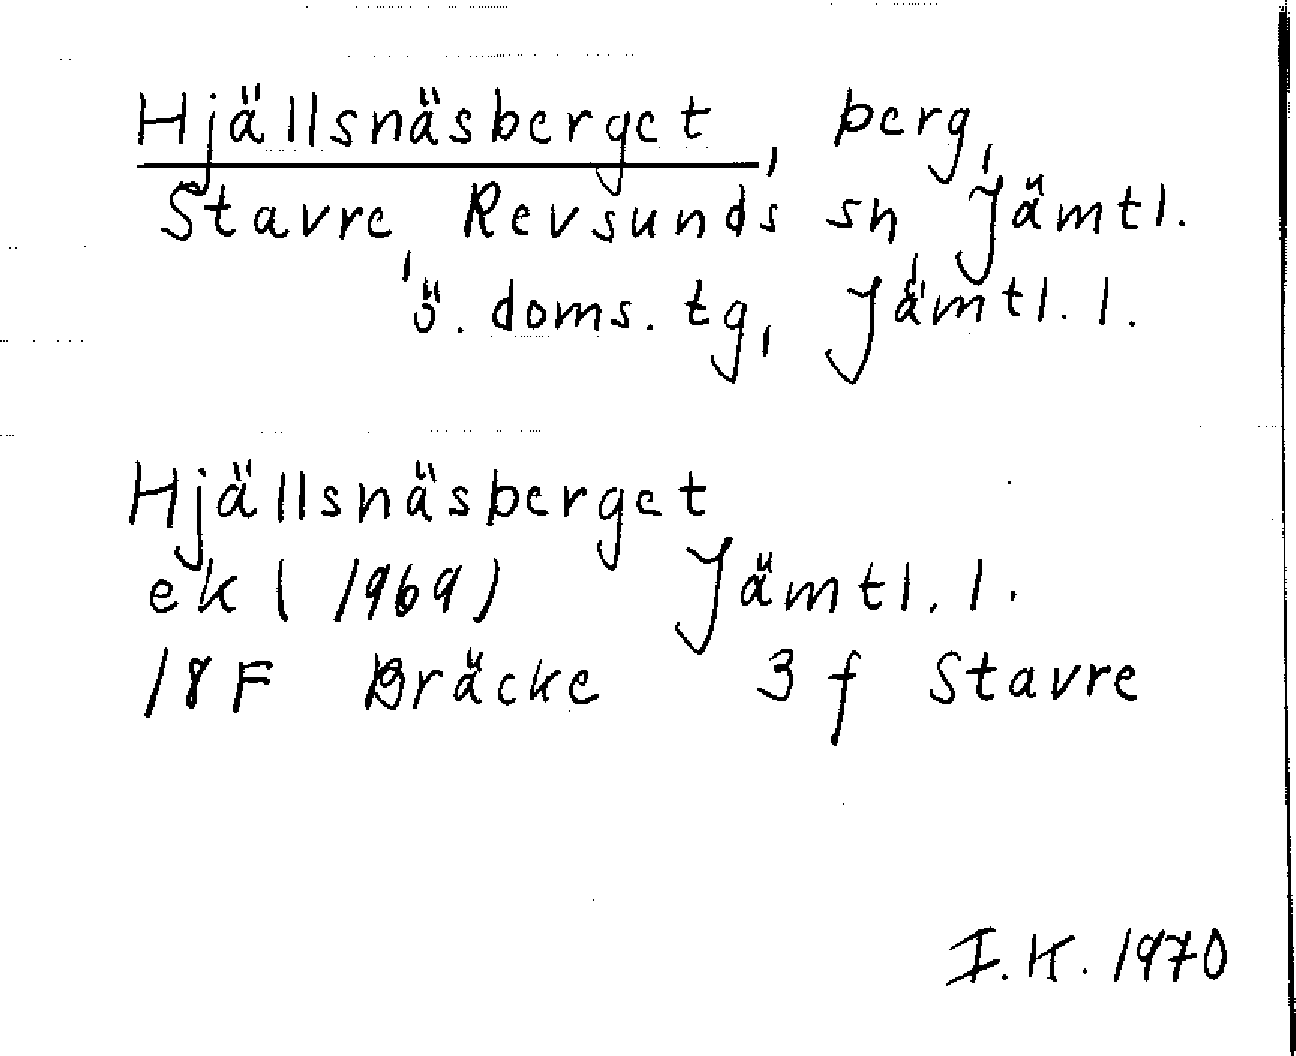 Hjällsnäsberget, berg,
Stavre, Revsunds sn, Jämtl.
ö. doms. tg, Jämtl. l.
Hjällsnäsberget
ek (1969) Jämtl. l.
18F Bräcke 3 f Stavre
I.K. 1970